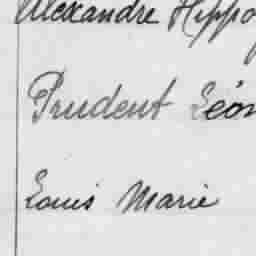 Alexandre Hippo
Prudent Léon
Louis Marie